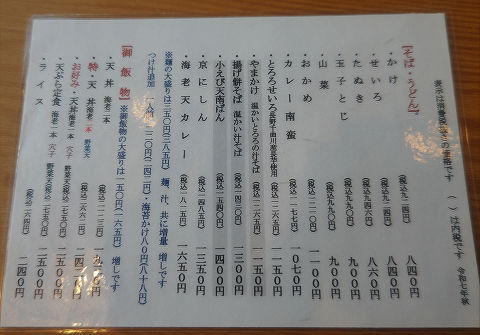 表示は消費税抜きの価格です （ ）は内税です 令和七年秋
【そば・うどん】
・かけ （税込九二四円） 八四〇円
・せいろ （税込九二四円） 八四〇円
・たぬき （税込九四六円） 八六〇円
・玉子とじ （税込九九〇円） 九〇〇円
・山菜 （税込九九〇円） 九〇〇円
・おかめ （税込一二一〇円） 一一〇〇円
・カレー南蛮 （税込一一七七円） 一〇七〇円
・とろろせいろ 長野千曲川産長芋使用 （税込一二六五円） 一一五〇円
・やまかけ 温かいとろろの汁そば （税込一二六五円） 一一五〇円
・揚げ餅そば 温かい汁そば （税込一四三〇円） 一三〇〇円
・小えび天南ばん （税込一五四〇円） 一四〇〇円
・京にしん （税込一四八五円） 一三五〇円
・海老天カレー （税込一八一五円） 一六五〇円
※麺の大盛りは三五〇円（三八五円） 麺、汁、共に増量 増しです
つけ汁追加 一人前 二二〇円（二四二円）・海苔かけ八〇円（八八円）
【御飯物】 ※御飯物の大盛りは一五〇円（一六五円） 増しです
・天丼 海老二本
・特・天丼 海老二本 野菜天
・お好み・天丼 海老一本 穴子 野菜天
・天ぷら定食 海老一本 穴子 野菜天
・ライス （税込二六四円） 二四〇円